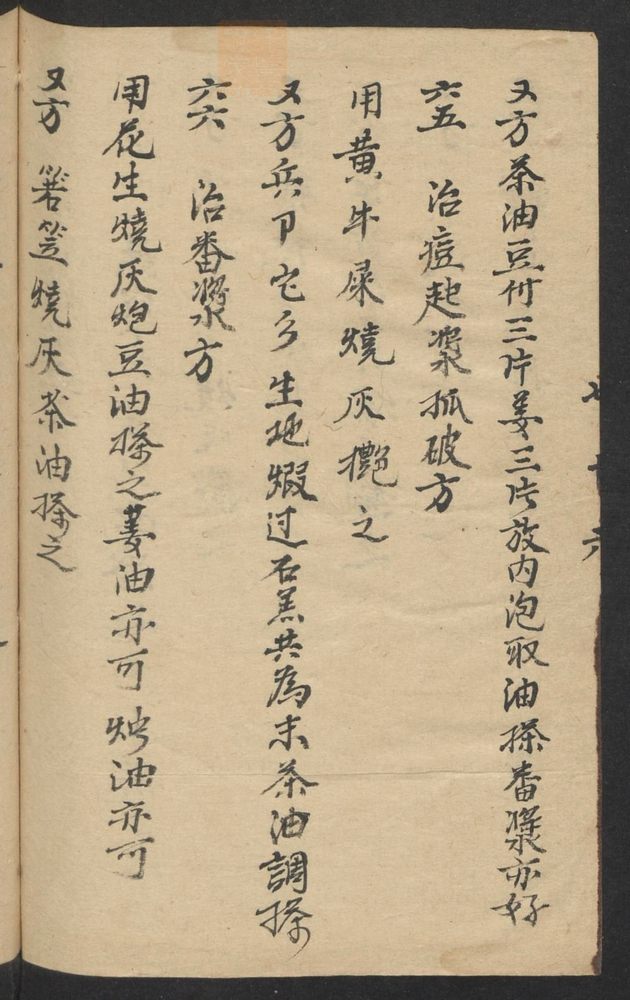 又方茶油豆付三片姜三片放内泡取油搽番漿亦好
六五　治痘起漿抓破方
用黄牛屎燒灰艷之
又方兵卩它乡生地煅过石羔共為末茶油調搽
六六　治番漿方
用花生燒灰炮豆油搽之蔞油亦可　油亦可
又方　箬笠燒灰茶油搽之